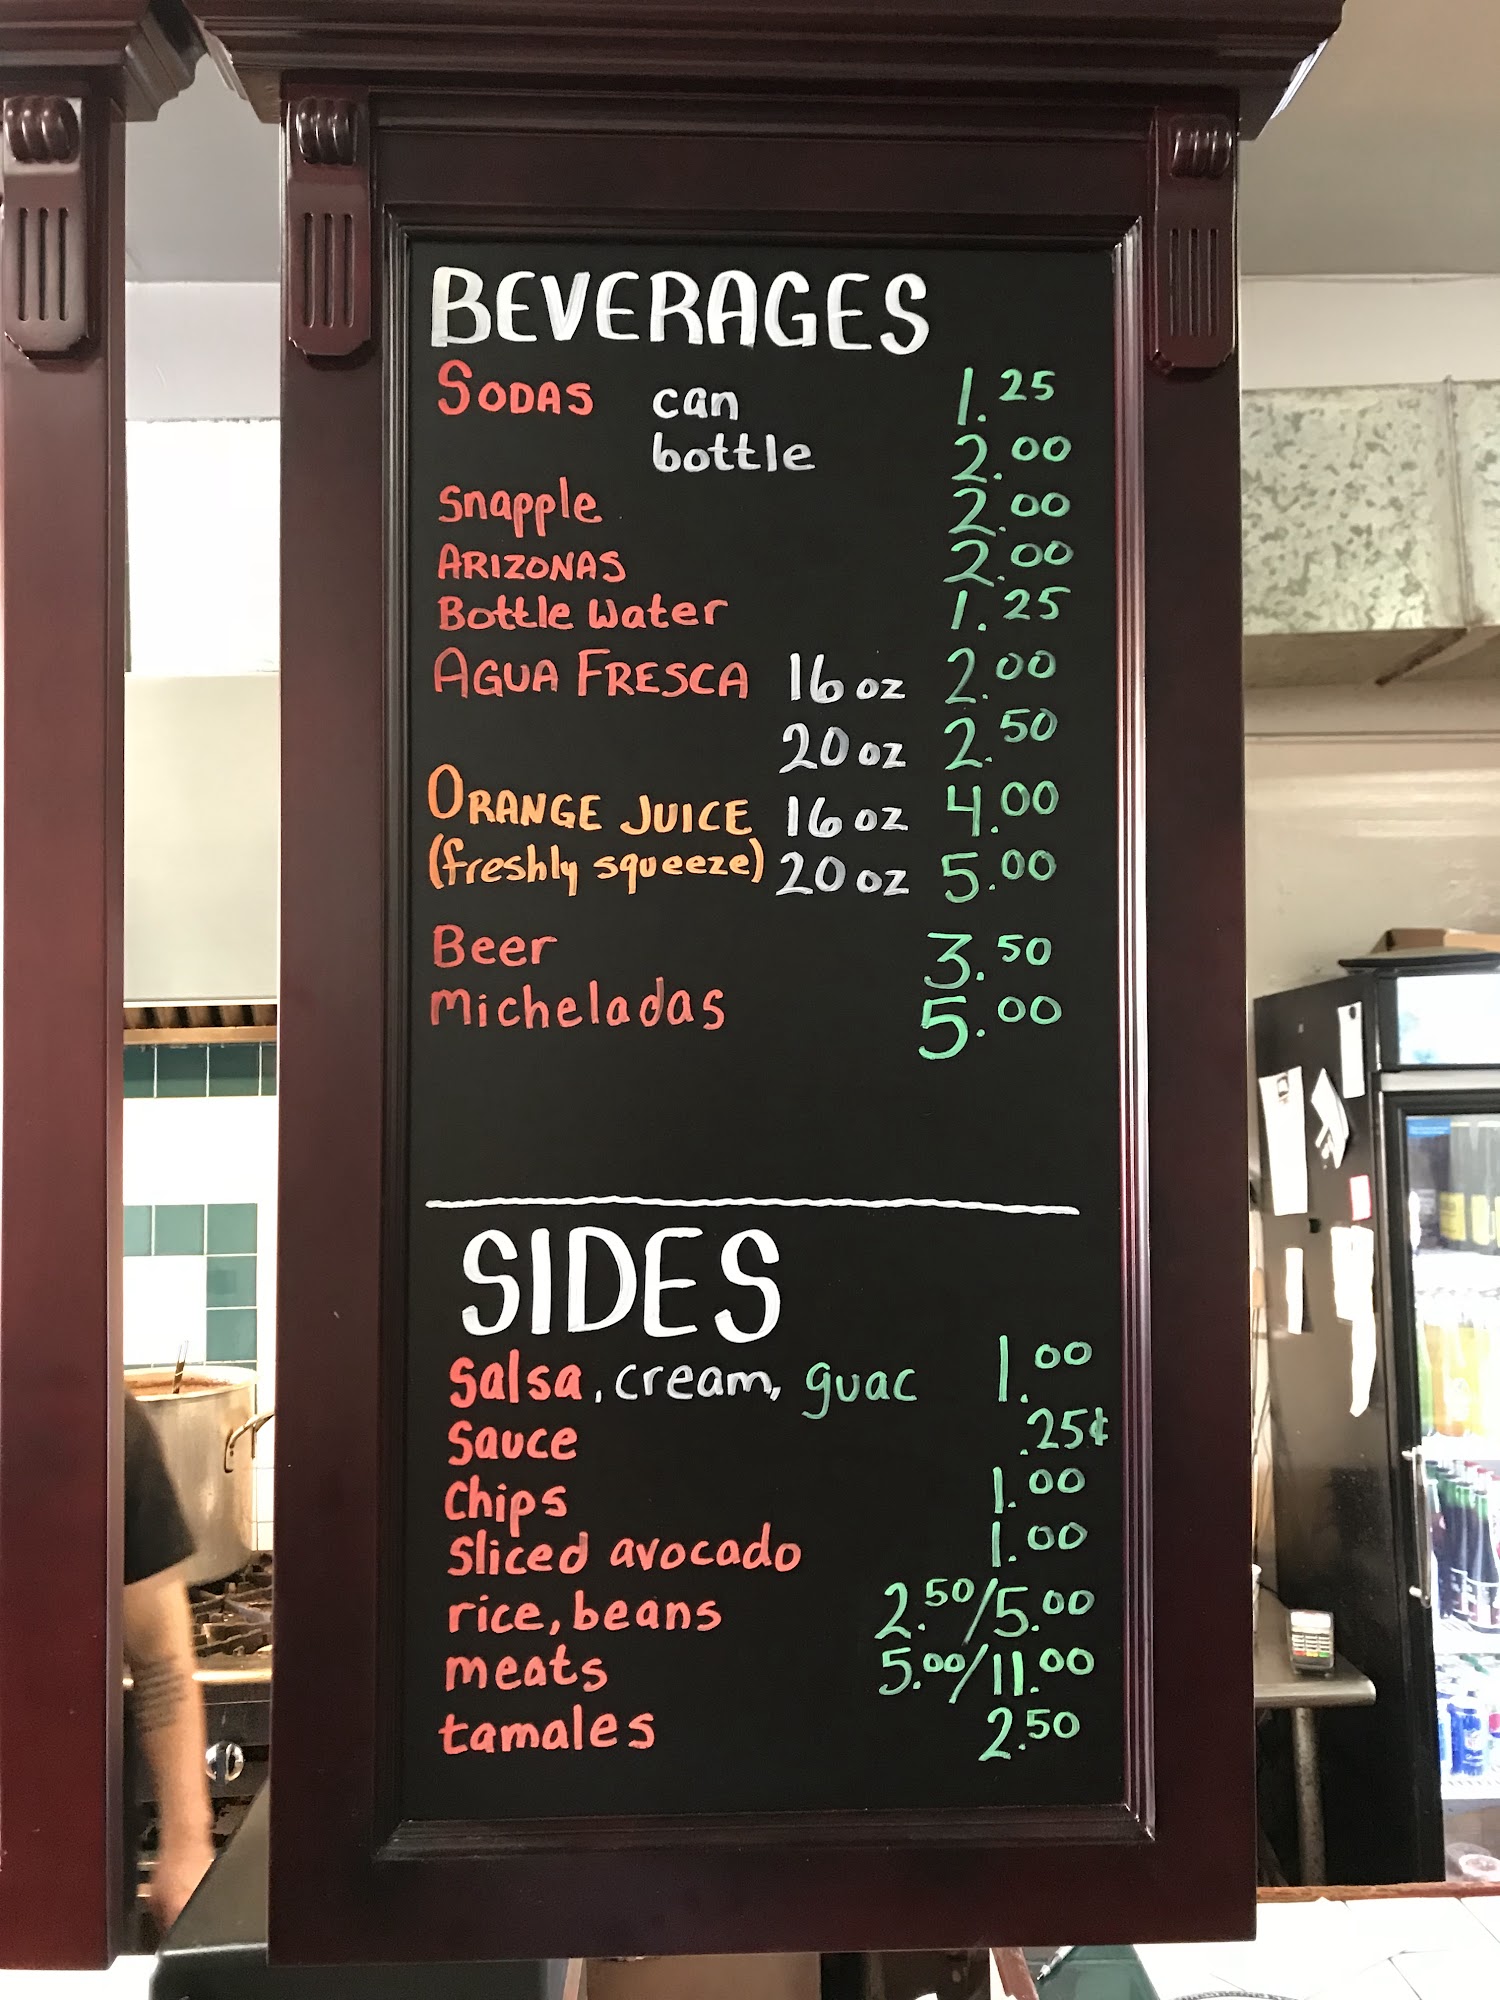 BEVERAGES
SODAS can 1.25
bottle 2.00
Snapple 2.00
ARIZONAS 2.00
Bottle Water 1.25
AGUA FRESCA 16 oz 2.00
20 oz 2.50
ORANGE JUICE 16 oz 4.00
(freshly squeeze) 20 oz 5.00
Beer 3.50
Micheladas 5.00
SIDES
Salsa, cream, guac 1.00
Sauce .25¢
Chips 1.00
Sliced avocado 1.00
rice, beans 2.50/5.00
meats 5.00/11.00
tamales 2.50